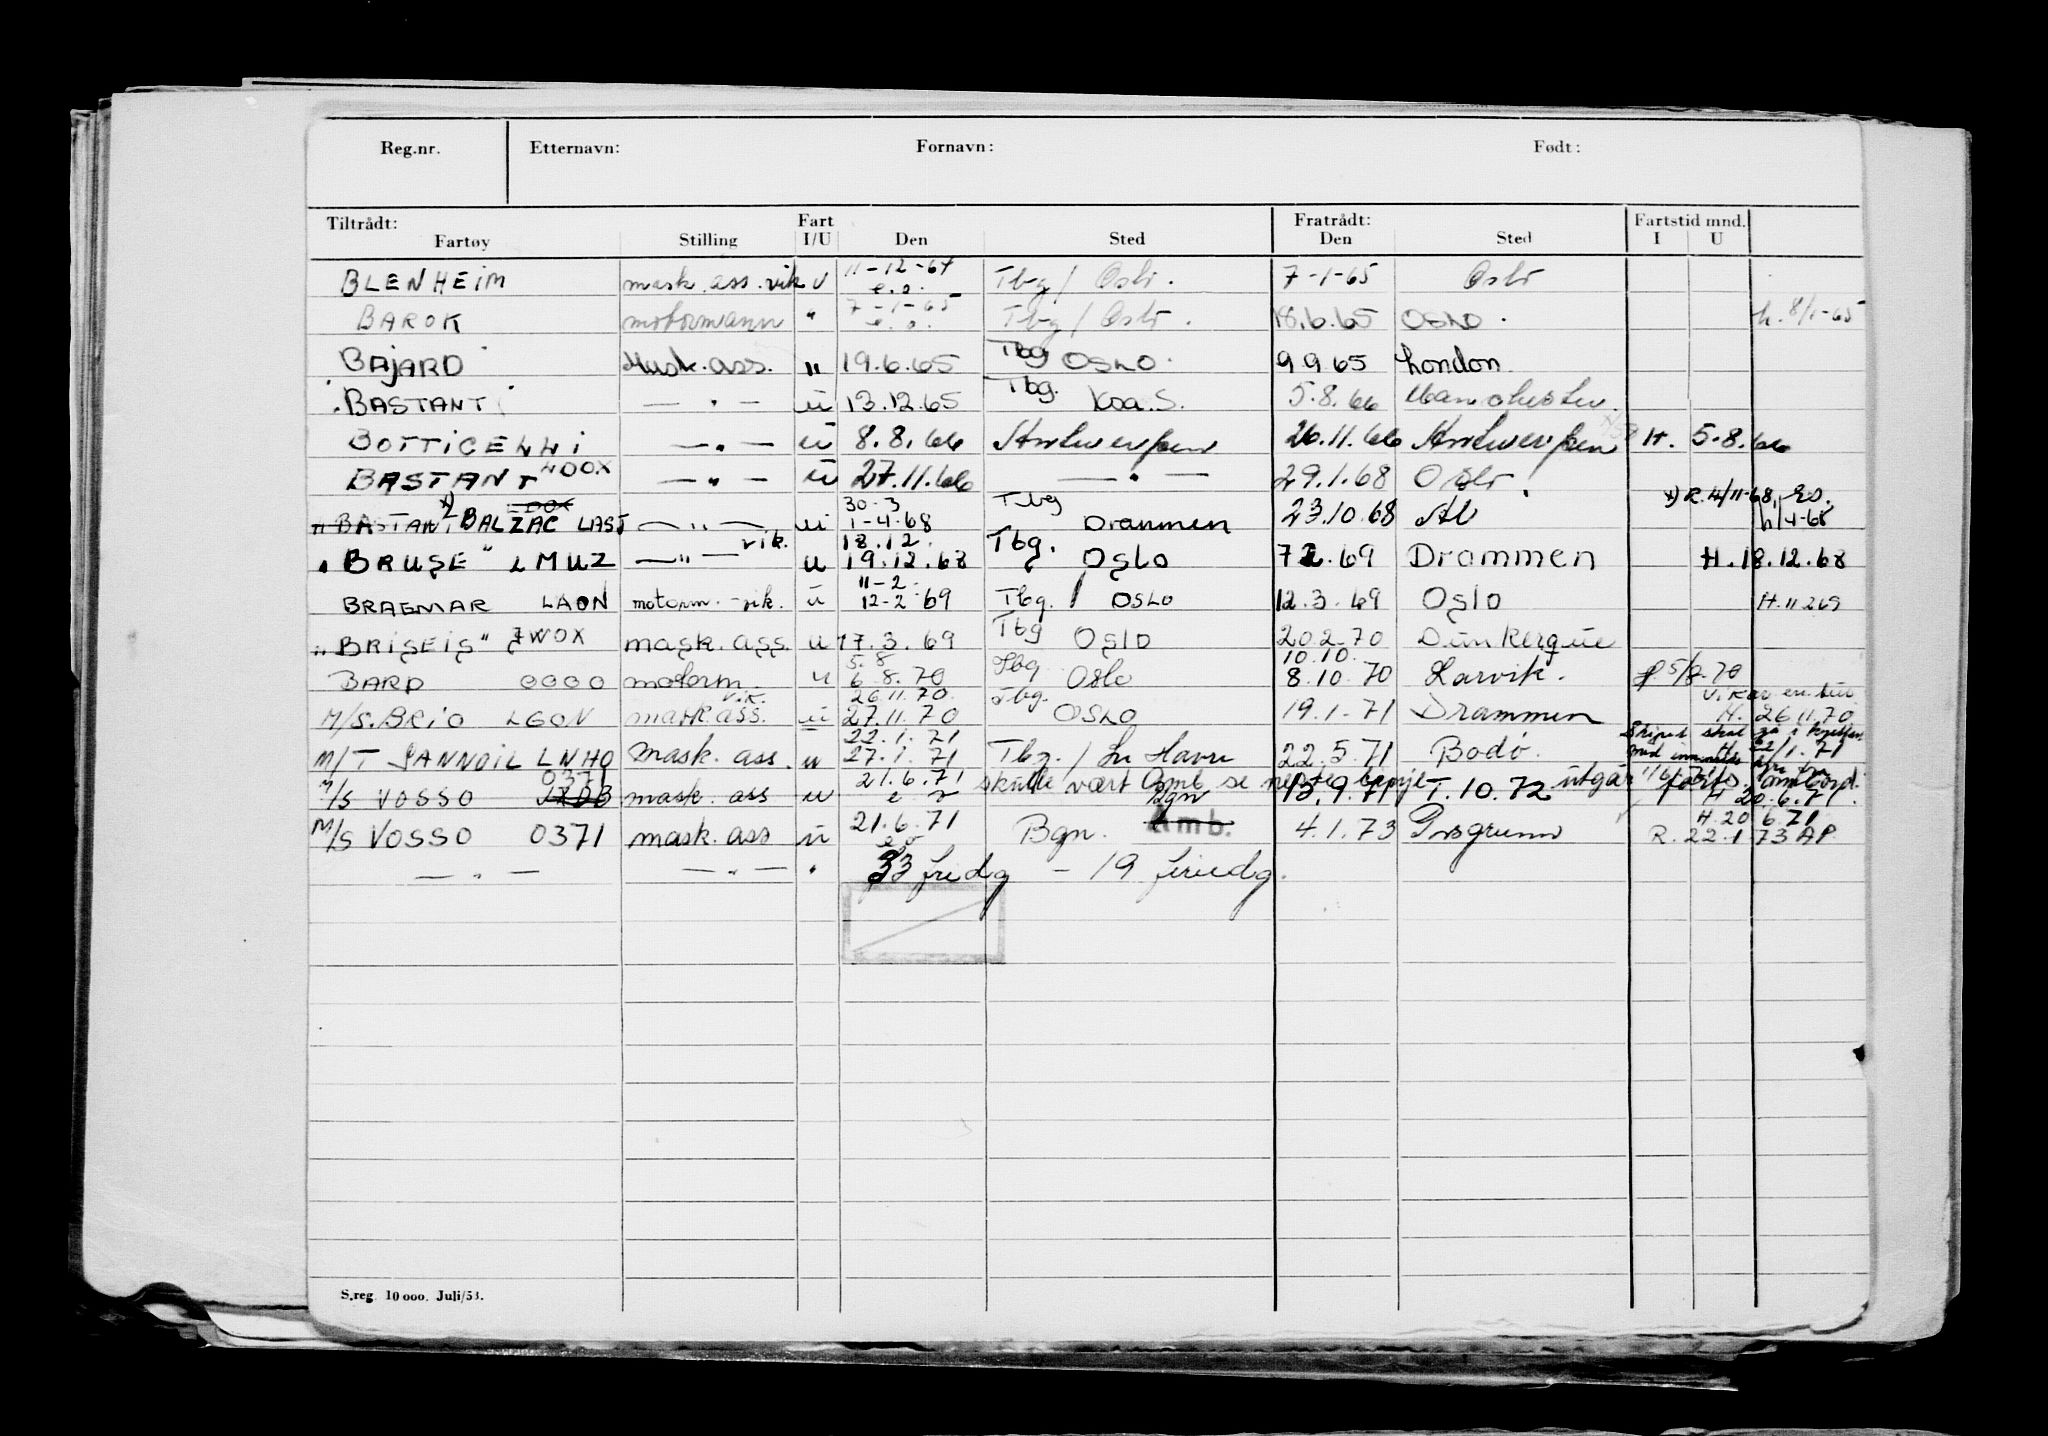 Reg.nr. Etternavn: Fornavn: Født:
Tiltrådt: Fart Fratrådt: Fartstid mnd.
Fartøy Stilling I/U Den Sted Den Sted I U
BLENHEIM mask.ass.vik U 11-12-64 e.o. Tbg / Oslo. 7-1-65 Oslo
BAROK motormann " 7-1-65 e.o. Tbg / Oslo. 18.6.65 OSLO. h. 8/1-65
BAJARD Mask.ass. " 19.6.65 Tbg OSLO. 9 9 65 London.
BASTANT — " — ü 13.12.65 Tbg. Koa.S. 5.8.66 Manchester.
BOTTICELLI — " — ü 8.8.66 Antwerpen 26.11.66 Antwerpen H. 5.8.66
BASTANT LDOX — " — ü 27.11.66 — " — 29.1.68 Oslo
BASTANT x) BALZAC LAST — " — ü 30-3 1-4-68 Tbg Drammen 23.10.68 x) R.4/11-68, h/4-68
"BRUSE" LMUZ — " — vik. u 18.12. 19.12.68 Tbg. OSLO 7 2.69 Drammen H. 18.12.68
BRAGMAR LAON motorm.-vik. ü 11-2- 12-2-69 Tbg. / OSLO 12.3.69 Oslo H. 11 2 69
"BRISEIS" ZWOX mask.ass. u 17.3.69 Tbg OSLO 20.2.70 Dunkerque
BARD OOOO motorm. u 5.8 6.8.70 Tbg. Oslo 10.10. 8.10.70 Larvik. 5/8-70
M/S.BRIO LGON mask.ass. v.k. ü 26.11.70 27.11.70 Tbg. OSLO 19.1-71 Drammen H. 26 11.70
M/T SANNOIL LNHO Mask.ass. u 22.1.71 27.1.71 Tbg. / Le Havre 22.5.71 Bodø. H. 22/1.71
M/S VOSSO 0371 mask.ass u 21.6.71 skulle vært Amb se neste linje Bgn 13.9.71 T.10.72 utgår H 20.6.71.
M/S VOSSO 0371 mask.ass ü 21.6.71 e o Bgn. Amb. 4.1.73 Porsgrunn H. 20 6.71 R. 22.1 73 AP.
— " — — " — " 33 fridg — 19 feriedg.
S.reg. 10 000. Juli/53.